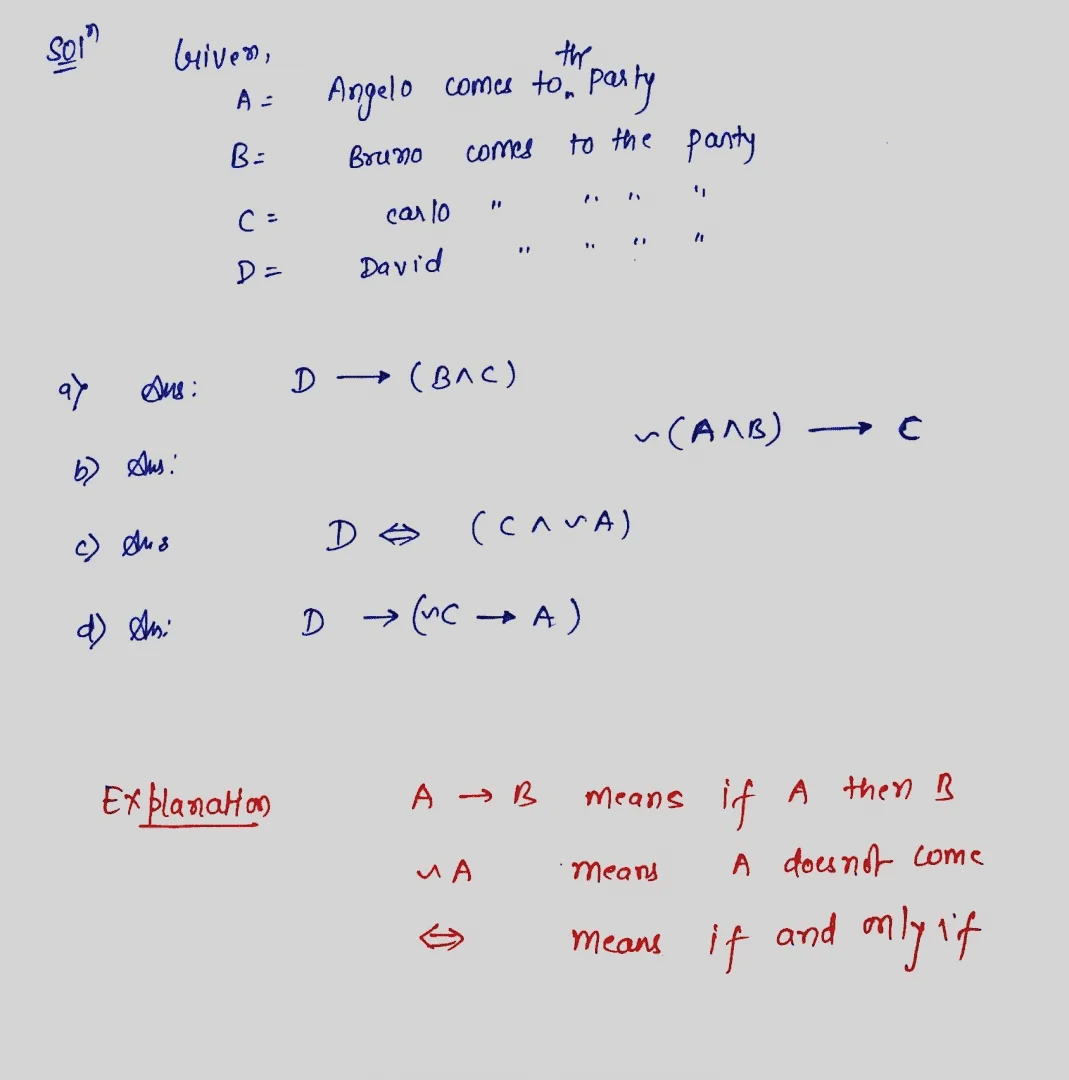 Solⁿ Given,
A = Angelo comes to the party
B = Bruno comes to the party
C = carlo " " " "
D = David " " " "
a) Ans: D → (B∧C)
b) Ans: ~(A∧B) → C
c) Ans D ⇔ (C∧~A)
d) An: D → (~C → A)
Explanation A → B means if A then B
~A means A does not come
⇔ means if and only if